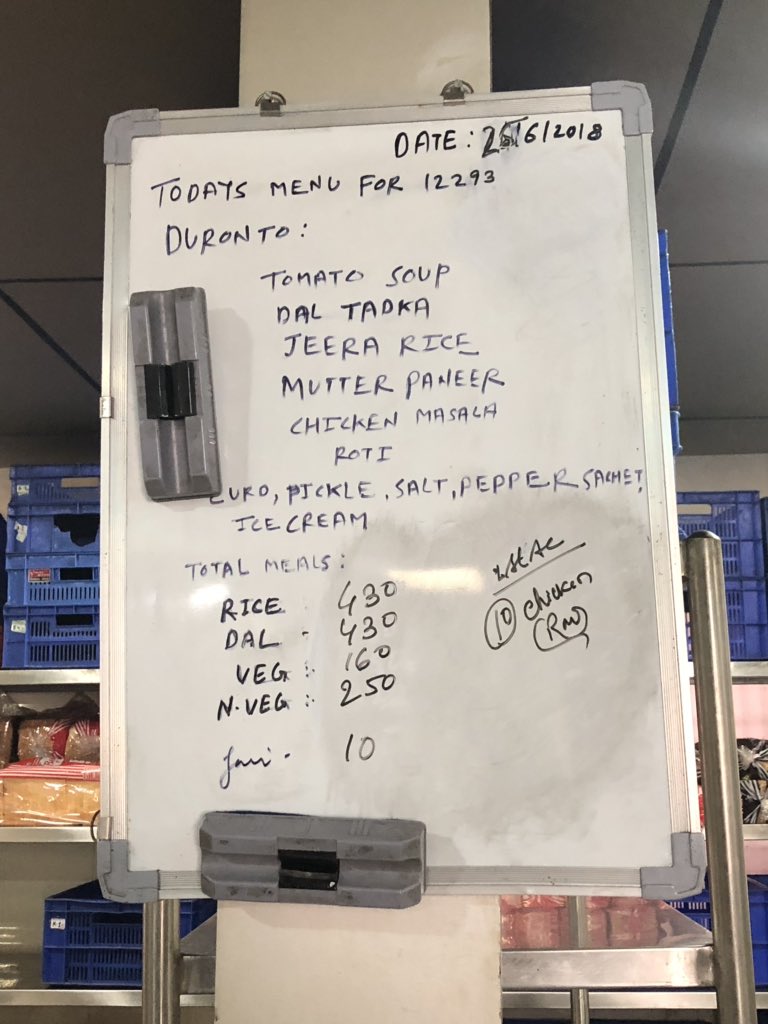 DATE: 25/6/2018
TODAYS MENU FOR 12293
DURONTO:
TOMATO SOUP
DAL TADKA
JEERA RICE
MUTTER PANEER
CHICKEN MASALA
ROTI
CURD, PICKLE, SALT, PEPPER SACHET,
ICE CREAM
TOTAL MEALS:
RICE : 430
DAL - 430
VEG :- 160
N.VEG :- 250
Jain - 10
Ist AC
10 chicken